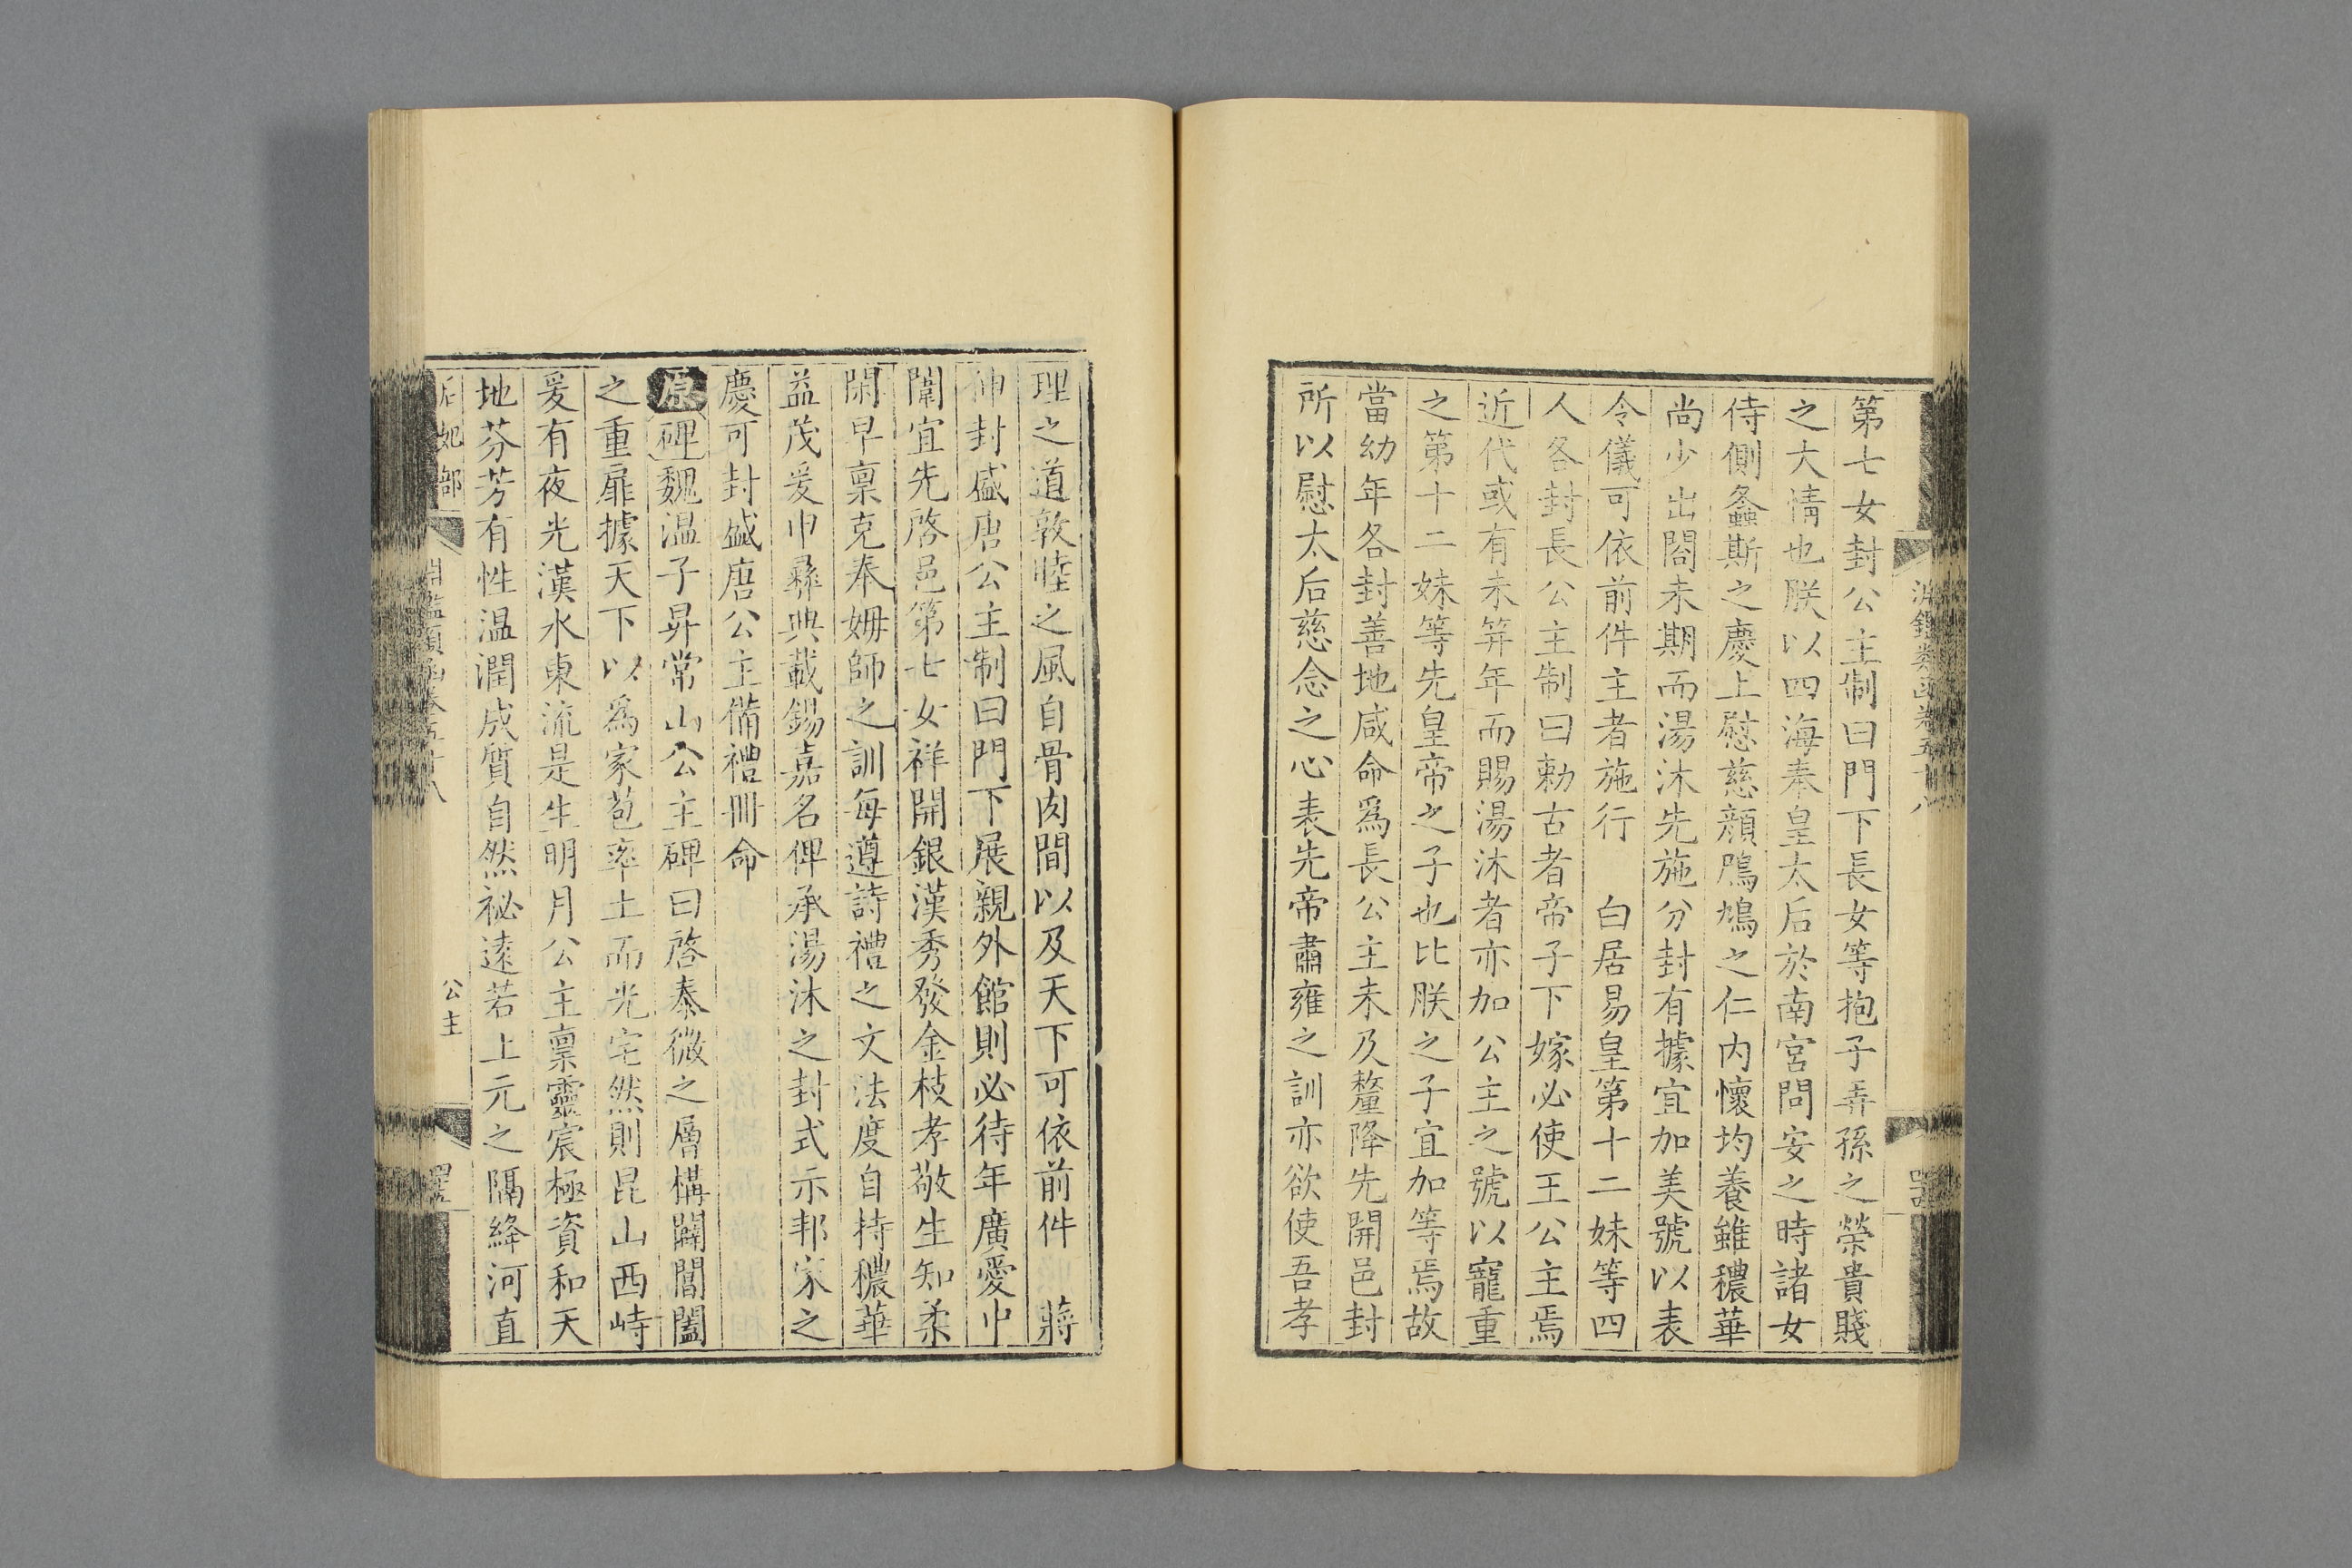 第七女封公主制曰門下長女等抱子弄孫之榮貴賤
之大情也朕以四海奉皇太后於南宮問安之時諸女
侍側螽斯之慶上慰慈顏鳲鳩之仁内懷均養雖穠華
尚少出閤未期而湯沐先施分封有據宜加美號以表
令儀可依前件主者施行　白居易皇第十二妹等四
人各封長公主制曰勅古者帝子下嫁必使王公主焉
近代或有未笄年而賜湯沐者亦加公主之號以寵重
之第十二妹等先皇帝之子也比朕之子宜加等焉故
當幼年各封善地咸命爲長公主未及釐降先開邑封
所以慰太后慈念之心表先帝肅雍之訓亦欲使吾孝
理之道敦睦之風自骨肉間以及天下可依前件　蔣
伸封盛唐公主制曰門下展親外館則必待年廣愛中
闈宜先啓邑第七女祥開銀漢秀發金枝孝敬生知柔
閑早稟克奉姆師之訓每遵詩禮之文法度自持穠華
益茂爰申彝典載錫嘉名俾承湯沐之封式示邦家之
慶可封盛唐公主備禮冊命
原碑魏温子昇常山公主碑曰啓泰微之層構闢閶闔
之重扉據天下以爲家苞率土而光宅然則昆山西峙
爰有夜光漢水東流是生明月公主稟靈宸極資和天
地芬芳有性温潤成質自然祕遠若上元之隔絳河直
后妃部
公主